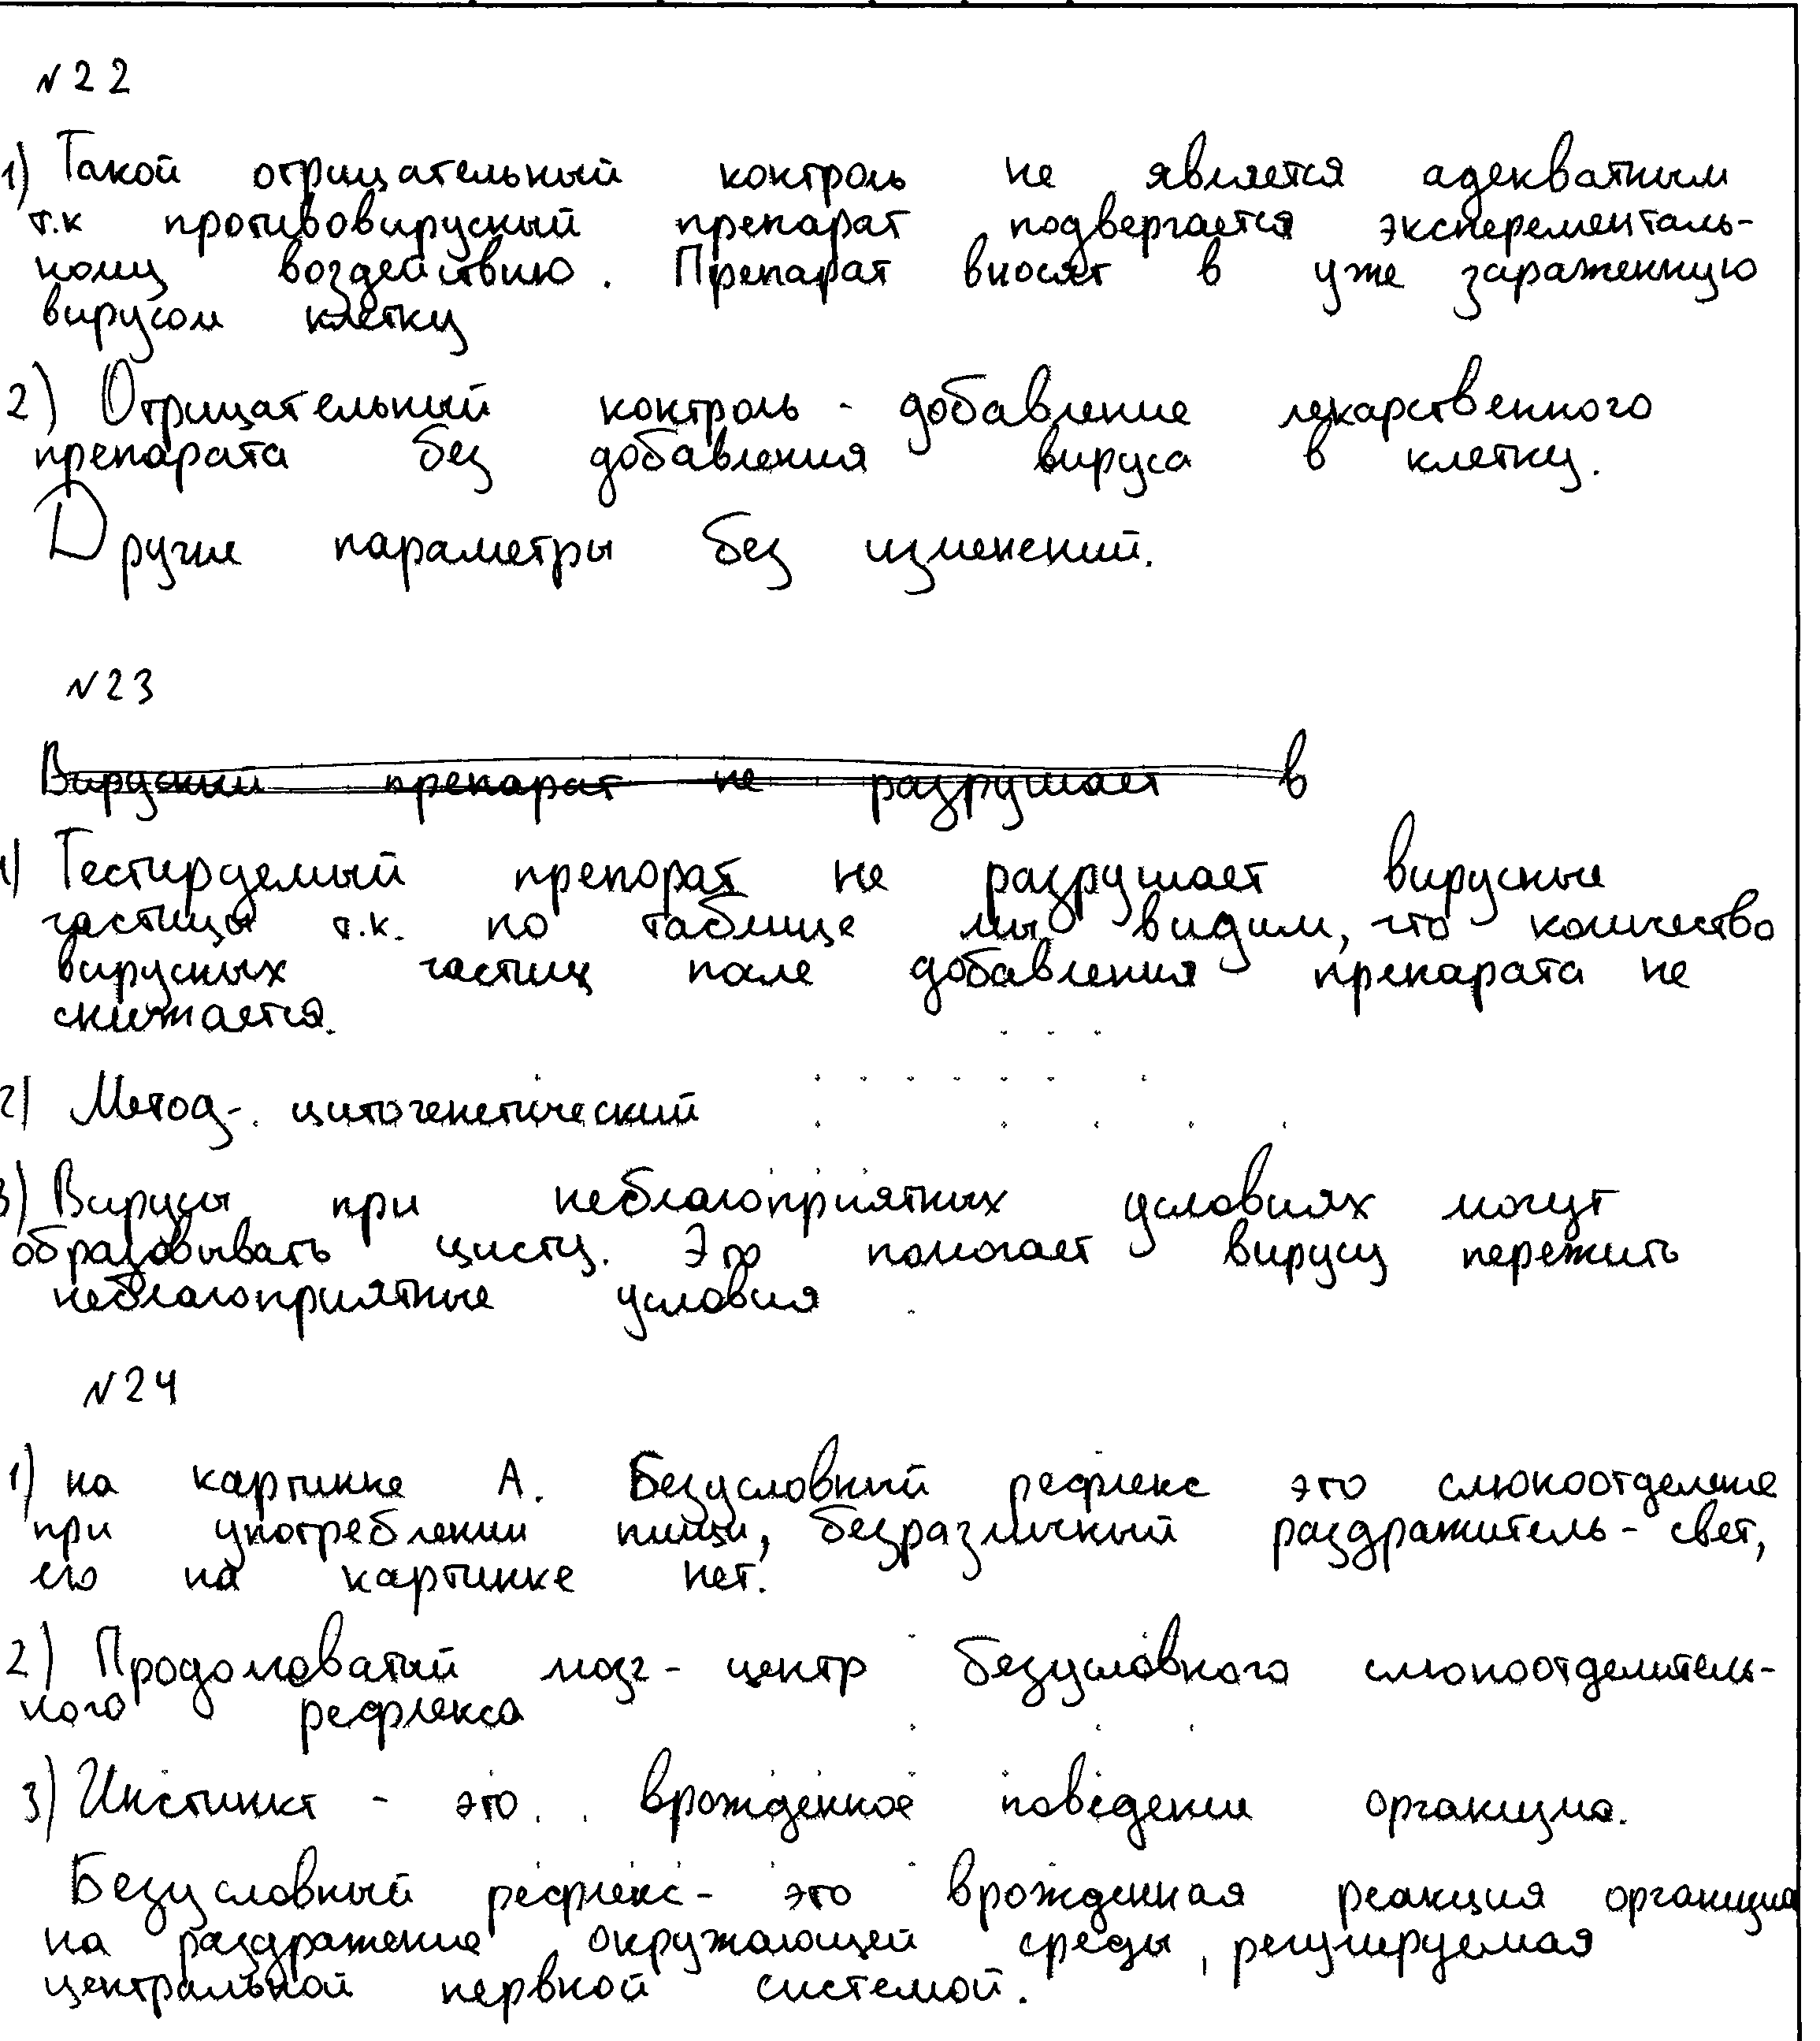 №22
1) Такой отрицательный контроль не является адекватным
т.к противовирусный препарат подвергается эксперементаль-
ному воздействию. Препарат вносят в уже зараженную
вирусом клетку
2) Отрицательный контроль - добавление лекарственного
препарата без добавления вируса в клетку.
Другие параметры без изменений.
№23
Вирусный препарат не разрушает в
1) Тестируемый препарат не разрушает вирусные
частицы т.к. по таблице мы видим, что количество
вирусных частиц после добавления препарата не
снижается.
2) Метод - цитогенетический
3) Вирусы при неблагоприятных условиях могут
образовывать цисты. Это помогает вирусу пережить
неблагоприятные условия
№24
1) на картинке А. Безусловный рефлекс это слюноотделение
при употреблении пищи, безразличный раздражитель - свет,
его на картинке нет.
2) Продолговатый мозг - центр безусловного слюноотделитель-
ного рефлекса
3) Инстинкт - это врожденное поведение организма.
Безусловный рефлекс - это врожденная реакция организма
на раздражение окружающей среды, регулируемая
центральной нервной системой.